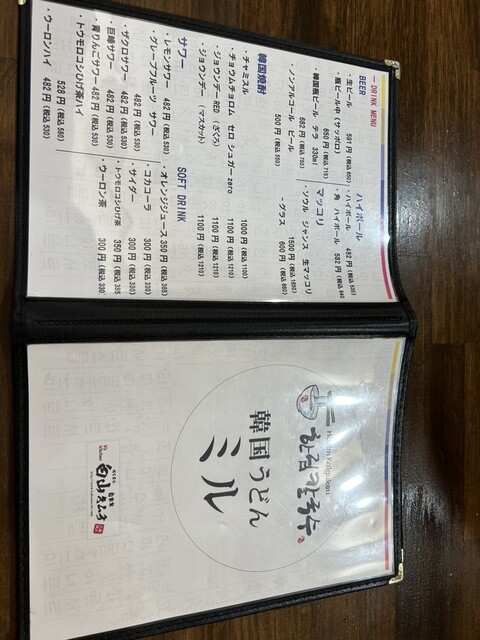 DRINK MENU
BEER
・生ビール 591 円 (税込 650)
・瓶ビール中 (サッポロ)
650 円 (税込 715)
・韓国瓶ビール テラ 330ml
682 円 (税込 750)
・ノンアルコール ビール
500 円 (税込 550)
ハイボール
・ハイボール 482 円 (税込 530)
・角 ハイボール 582 円 (税込 640
マッコリ
・ソウル ジャンス 生マッコリ
1500 円 (税込 1650)
- グラス 600 円 (税込 660)
韓国焼酎
・チャミスル 1000 円 (税込 1100)
・チョウムチョロム セロ シュガー zero 1100 円 (税込 1210)
・ジョウンデー RED (ざくろ) 1100 円 (税込 1210)
・ジョウンデー (マスカット) 1100 円 (税込 1210)
サワー
・レモンサワー 482 円 (税込 530)
・グレープフルーツ サワー
482 円 (税込 530)
・ザクロサワー 482 円 (税込 530)
・巨峰サワー 482 円 (税込 530)
・青りんごサワー 482 円 (税込 530)
・トウモロコシひげ茶ハイ
528 円 (税込 580)
・ウーロンハイ 482 円 (税込 530)
SOFT DRINK
・オレンジジュース 350 円 (税込 385)
・コカコーラ 300 円 (税込 330)
・サイダー 300 円 (税込 330)
・トウモロコシひげ茶 350 円 (税込 385
・ウーロン茶 300 円 (税込 330
한림칼국수
Hallim Kalguksu
韓国うどん
ミル